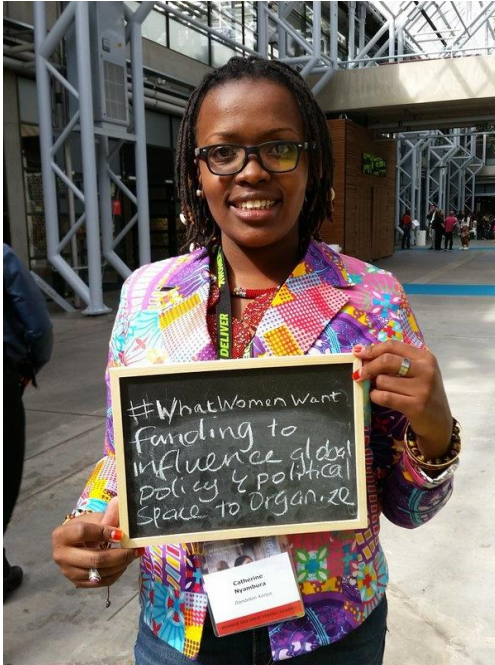 DELIVER
#WhatWomenWant
funding to
influence global
policy & political
space to Organize
Catherine
Nyambura
Dandelion Kenya